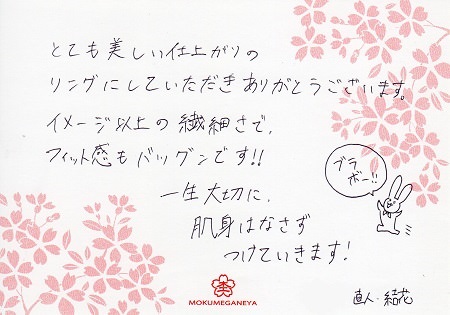 とても美しい仕上がりの
リングにしていただきありがとうございます。
イメージ以上の繊細さで、
フィット感もバツグンです!!
一生大切に、
肌身はなさず
つけていきます!
ブラ
ボー!!
MOKUMEGANEYA
直人・結花